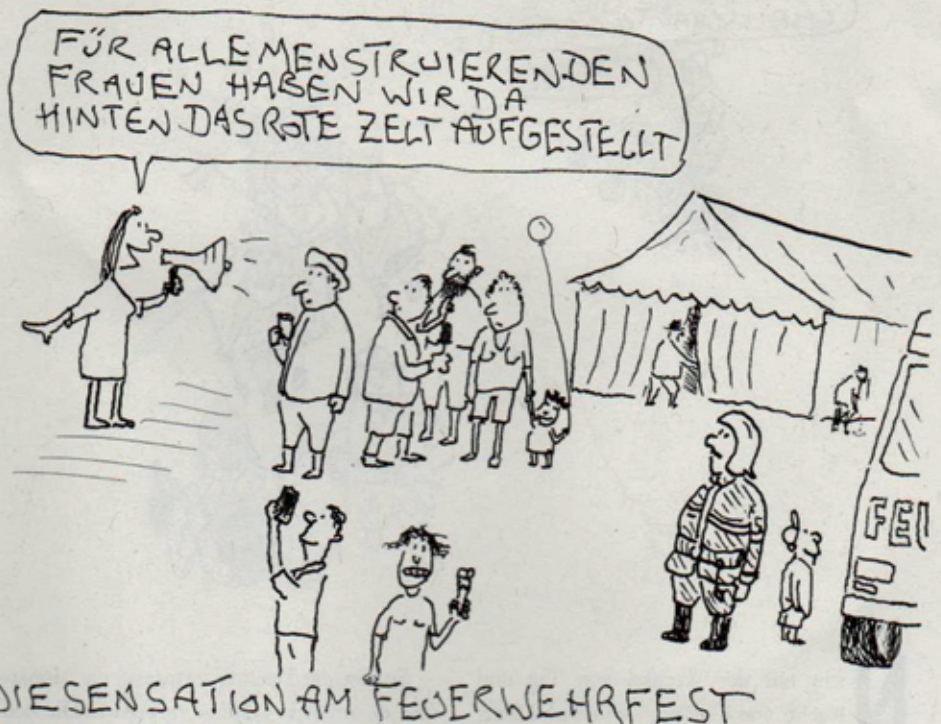 FÜR ALLE MENSTRUIERENDEN
FRAUEN HABEN WIR DA
HINTEN DAS ROTE ZELT AUFGESTELLT
FEU
DIE SENSATION AM FEUERWEHRFEST